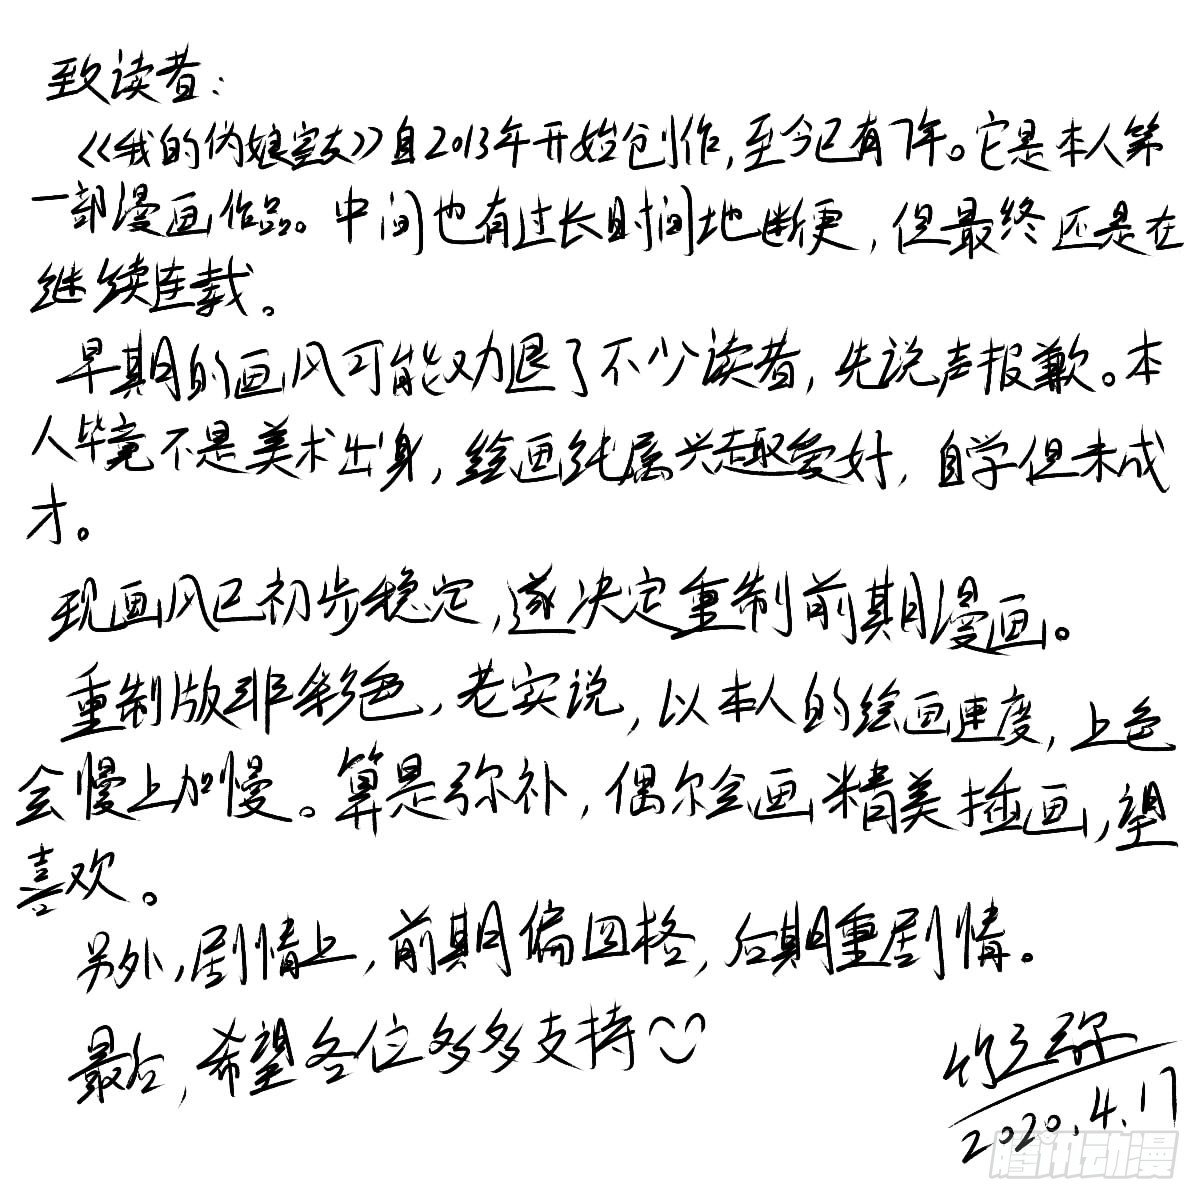 致读者：
《我的伪娘室友》自2013年开始创作，至今已有7年。它是本人第
一部漫画作品。中间也有过长时间地断更，但最终还是在
继续连载。
早期的画风可能劝退了不少读者，先说声报歉。本
人毕竟不是美术出身，绘画纯属兴趣爱好，自学但未成
才。
现画风已初步稳定，遂决定重制前期漫画。
重制版非彩色，老实说，以本人的绘画速度，上色
会慢上加慢。算是弥补，偶尔会画精美插画，望
喜欢。
另外，剧情上，前期偏四格，后期重剧情。
最后，希望各位多多支持
2020.4.17
腾讯动漫